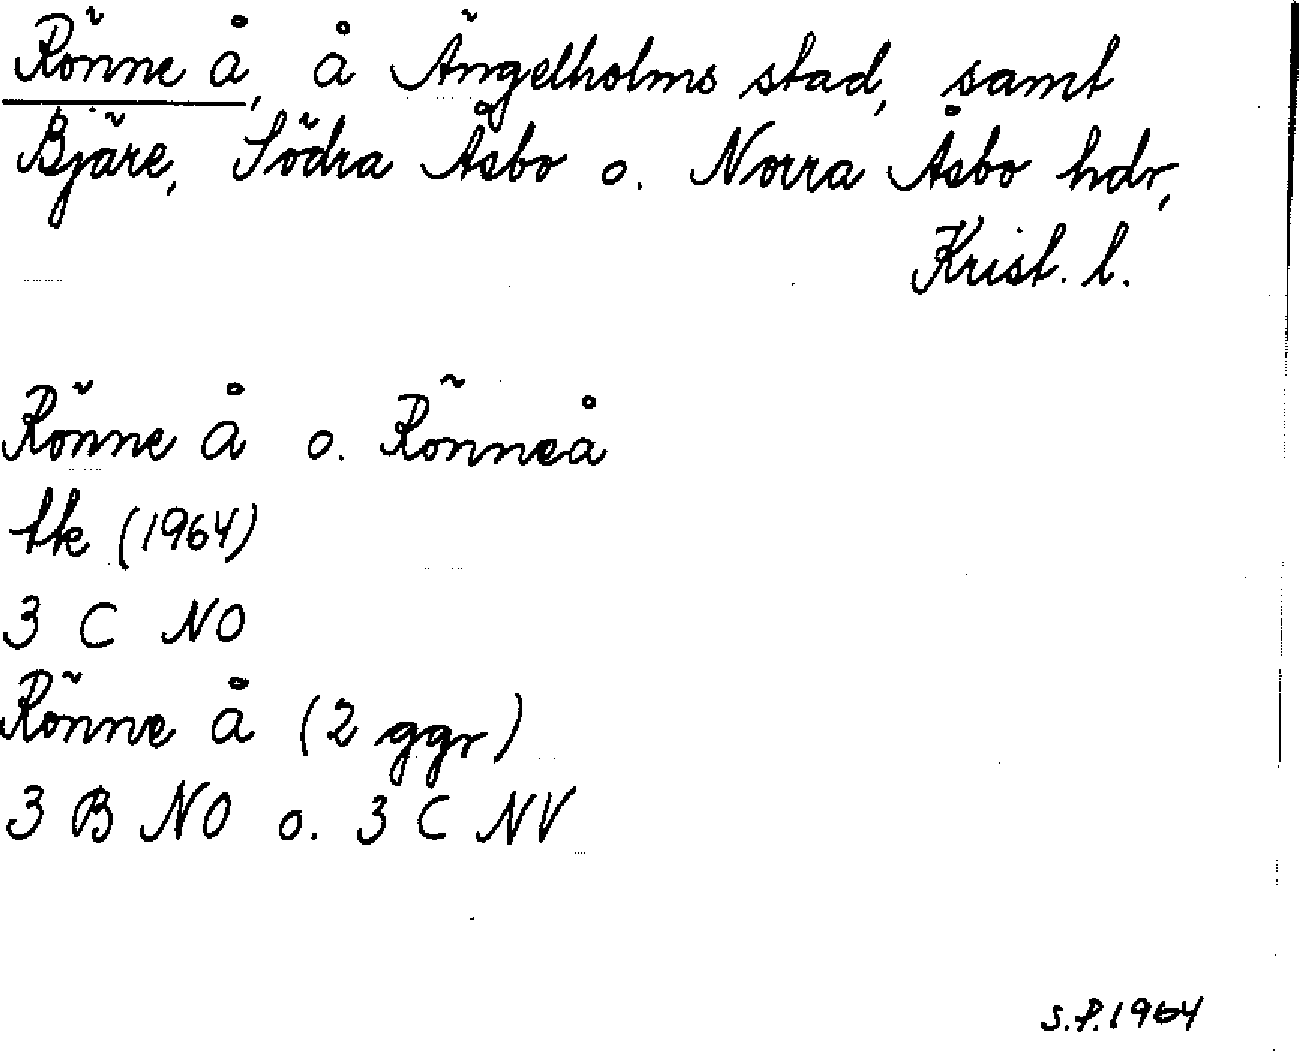 Rönne å, å Ängelholms stad, samt
Bjäre, Södra Åsbo o. Norra Åsbo hdr,
Krist. l.
Rönne å o. Rönneå
tk (1964)
3 C NO
Rönne å (2 ggr)
3 B NO o. 3 C NV
S.P. 1964